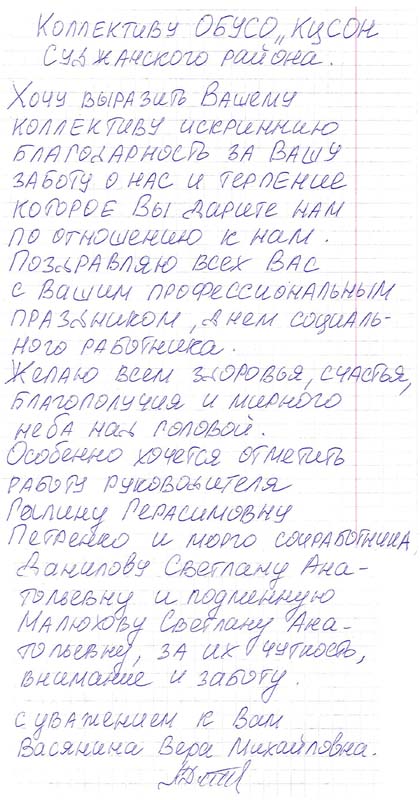 Коллективу ОБУСО „КЦСОН
Суджанского района.
Хочу выразить Вашему
коллективу искриннию
благодарность за Вашу
заботу о нас и терпение
которое Вы дарите нам
по отношению к нам.
Поздравляю всех Вас
с Вашим профессиональным
праздником, днем социаль-
ного работника.
Желаю всем здоровья, счастья,
благополучия и мирного
неба над головой.
Особенно хочется отметить
работу руководителя
Галину Герасимовну
Петренко и моего соцработника
Данилову Светлану Ана-
тольевну и подменную
Малюхову Светлану Ана-
тольевну, за их чуткость,
внимание и заботу.
с уважением к Вам
Васянина Вера Михайловна.